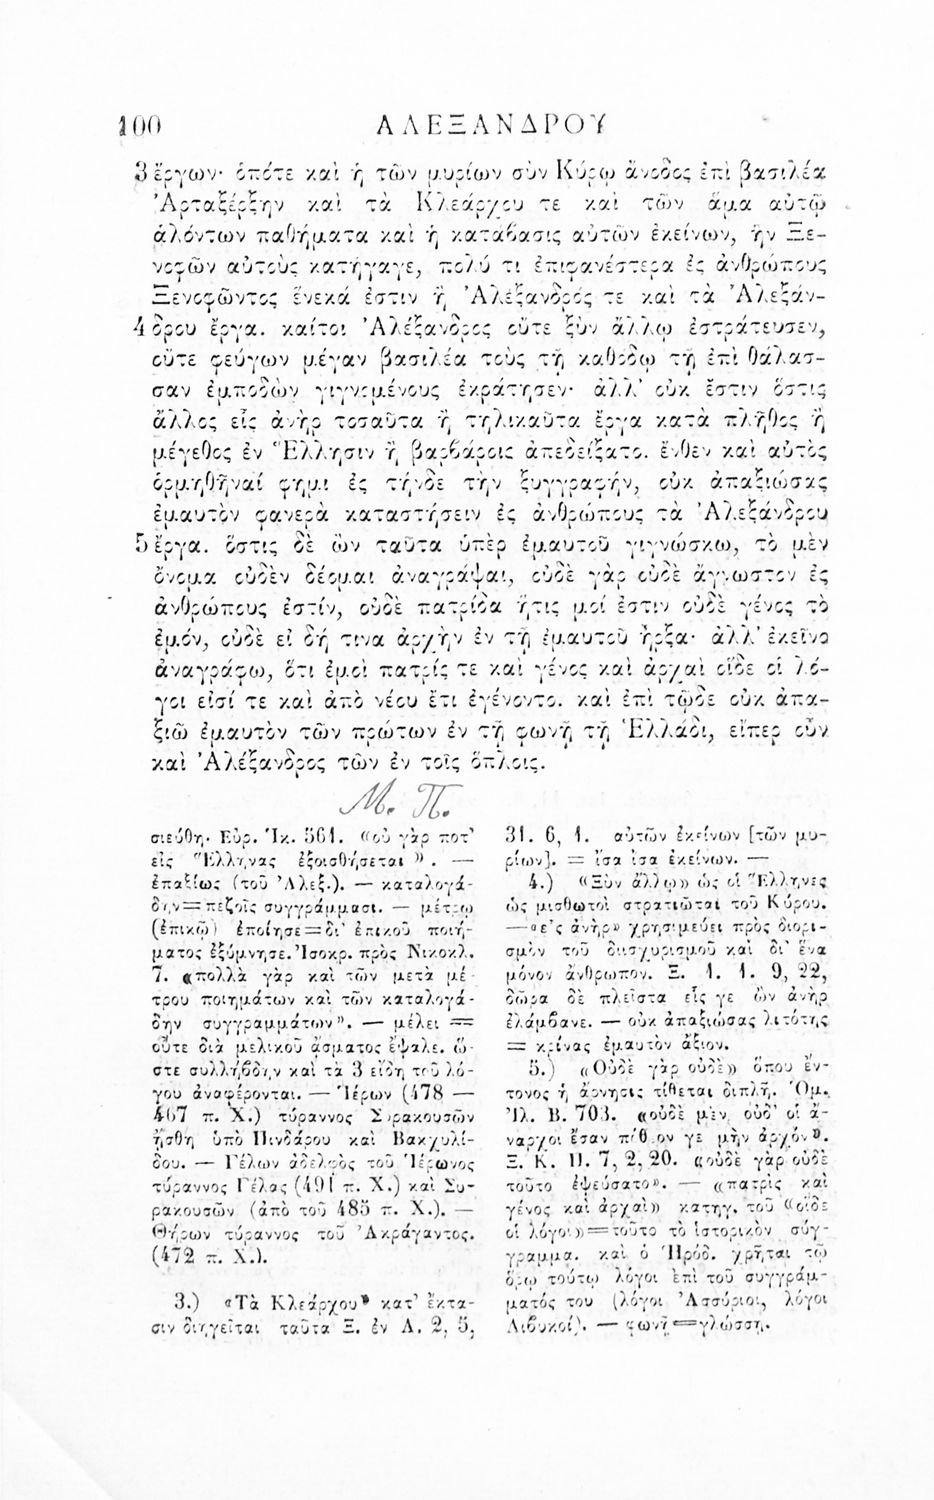 100 ΑΛΕΞΑΝΔΡΟΥ
3 ἔργων· ὁπότε καὶ ἡ τῶν μυρίων σὺν Κύρῳ ἄνοδος ἐπὶ βασιλέα
Ἀρταξέρξην καὶ τὰ Κλεάρχου τε καὶ τῶν ἅμα αὐτῷ
ἁλόντων παθήματα καὶ ἡ κατάβασις αὐτῶν ἐκείνων, ἣν Ξε-
νοφῶν αὐτοὺς κατήγαγε, πολύ τι ἐπιφανέστερα ἐς ἀνθρώπους
Ξενοφῶντος ἕνεκά ἐστιν ἢ Ἀλέξανδρός τε καὶ τὰ Ἀλεξάν-
4 δρου ἔργα. καίτοι Ἀλέξανδρος οὔτε ξὺν ἄλλῳ ἐστράτευσεν,
οὔτε φεύγων μέγαν βασιλέα τοὺς τῇ καθόδῳ τῇ ἐπὶ θάλασ-
σαν ἐμποδὼν γιγνομένους ἐκράτησεν· ἀλλ' οὐκ ἔστιν ὅστις
ἄλλος εἷς ἀνὴρ τοσαῦτα ἢ τηλικαῦτα ἔργα κατὰ πλῆθος ἢ
μέγεθος ἐν Ἕλλησιν ἢ βαρβάροις ἀπεδείξατο. ἔνθεν καὶ αὐτὸς
ὁρμηθῆναί φημι ἐς τήνδε τὴν ξυγγραφήν, οὐκ ἀπαξιώσας
ἐμαυτὸν φανερὰ καταστήσειν ἐς ἀνθρώπους τὰ Ἀλεξάνδρου
5 ἔργα. ὅστις δὲ ὢν ταῦτα ὑπὲρ ἐμαυτοῦ γιγνώσκω, τὸ μὲν
ὄνομα οὐδὲν δέομαι ἀναγράψαι, οὐδὲ γὰρ οὐδὲ ἄγνωστον ἐς
ἀνθρώπους ἐστίν, οὐδὲ πατρίδα ἥτις μοί ἐστιν οὐδὲ γένος τὸ
ἐμόν, οὐδὲ εἰ δή τινα ἀρχὴν ἐν τῇ ἐμαυτοῦ ἦρξα· ἀλλ' ἐκεῖνο
ἀναγράφω, ὅτι ἐμοὶ πατρίς τε καὶ γένος καὶ ἀρχαὶ οἵδε οἱ λό-
γοι εἰσί τε καὶ ἀπὸ νέου ἔτι ἐγένοντο. καὶ ἐπὶ τῷδε οὐκ ἀπα-
ξιῶ ἐμαυτὸν τῶν πρώτων ἐν τῇ φωνῇ τῇ Ἑλλάδι, εἴπερ οὖν
καὶ Ἀλέξανδρος τῶν ἐν τοῖς ὅπλοις.
Μ. Π.
σιεύθη· Εὐρ. Ἱκ. 561. «οὐ γὰρ ποτ'
εἰς Ἕλληνας ἐξοισθήσεται». —
ἐπαξίως (τοῦ Ἀλεξ.). — καταλογά-
δην = πεζοῖς συγγράμμασι. — μέτρῳ
(ἐπικῷ) ἐποίησε = δι' ἐπικοῦ ποιή-
ματος ἐξύμνησε. Ἰσοκρ. πρὸς Νικοκλ.
7. «πολλὰ γὰρ καὶ τῶν μετὰ μέ-
τρου ποιημάτων καὶ τῶν καταλογά-
δην συγγραμμάτων». — μέλει =
οὔτε διὰ μελικοῦ ᾄσματος ἔψαλε. ὥ-
στε συλλήβδην καὶ τὰ 3 εἴδη τοῦ λό-
γου ἀναφέρονται. — Ἱέρων (478 —
467 π. Χ.) τύραννος Συρακουσῶν
ᾔσθη ὑπὸ Πινδάρου καὶ Βακχυλί-
δου. — Γέλων ἀδελφὸς τοῦ Ἱέρωνος
τύραννος Γέλας (491 π. Χ.) καὶ Συ-
ρακουσῶν (ἀπὸ τοῦ 485 π. Χ.). —
Θήρων τύραννος τοῦ Ἀκράγαντος.
(472 π. Χ.).
3.) «Τὰ Κλεάρχου» κατ' ἔκτα-
σιν διηγεῖται ταῦτα Ξ. ἐν Α. 2, 5,
31. 6, 1. αὐτῶν ἐκείνων [τῶν μυ-
ρίων]. = ἴσα ἴσα ἐκείνων. —
4.) «Ξὺν ἄλλῳ» ὡς οἱ Ἕλληνες
ὡς μισθωτοὶ στρατιῶται τοῦ Κύρου.
— «εἷς ἀνὴρ» χρησιμεύει πρὸς διορι-
σμὸν τοῦ διισχυρισμοῦ καὶ δι' ἕνα
μόνον ἄνθρωπον. Ξ. 1. 1. 9, 22,
δῶρα δὲ πλεῖστα εἷς γε ὢν ἀνὴρ
ἐλάμβανε. — οὐκ ἀπαξιώσας λιτότης
= κρίνας ἐμαυτὸν ἄξιον.
5.) «Οὐδὲ γὰρ οὐδὲ» ὅπου ἔν-
τονος ἡ ἄρνησις τίθεται διπλῆ. Ὁμ.
Ἰλ. Β. 703. «οὐδὲ μὲν οὐδ' οἱ ἄ-
ναρχοι ἔσαν πόθεον γε μὴν ἀρχόν».
Ξ. Κ. Π. 7, 2, 20. «οὐδὲ γὰρ οὐδὲ
τοῦτο ἐψεύσατο». — «πατρὶς καὶ
γένος καὶ ἀρχαὶ» κατηγ. τοῦ «οἵδε
οἱ λόγοι» = τοῦτο τὸ ἱστορικὸν σύγ-
γραμμα. καὶ ὁ Ἡρόδ. χρῆται τῷ
ὅρῳ τούτῳ λόγοι ἐπὶ τοῦ συγγράμ-
ματός του (λόγοι Ἀσσύριοι, λόγοι
Λιβυκοί). — φωνῇ = γλώσσῃ.